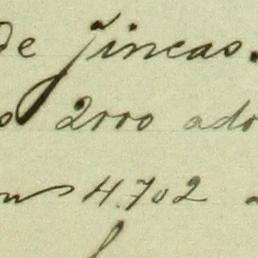 de fincas.
2000 ado
4.702